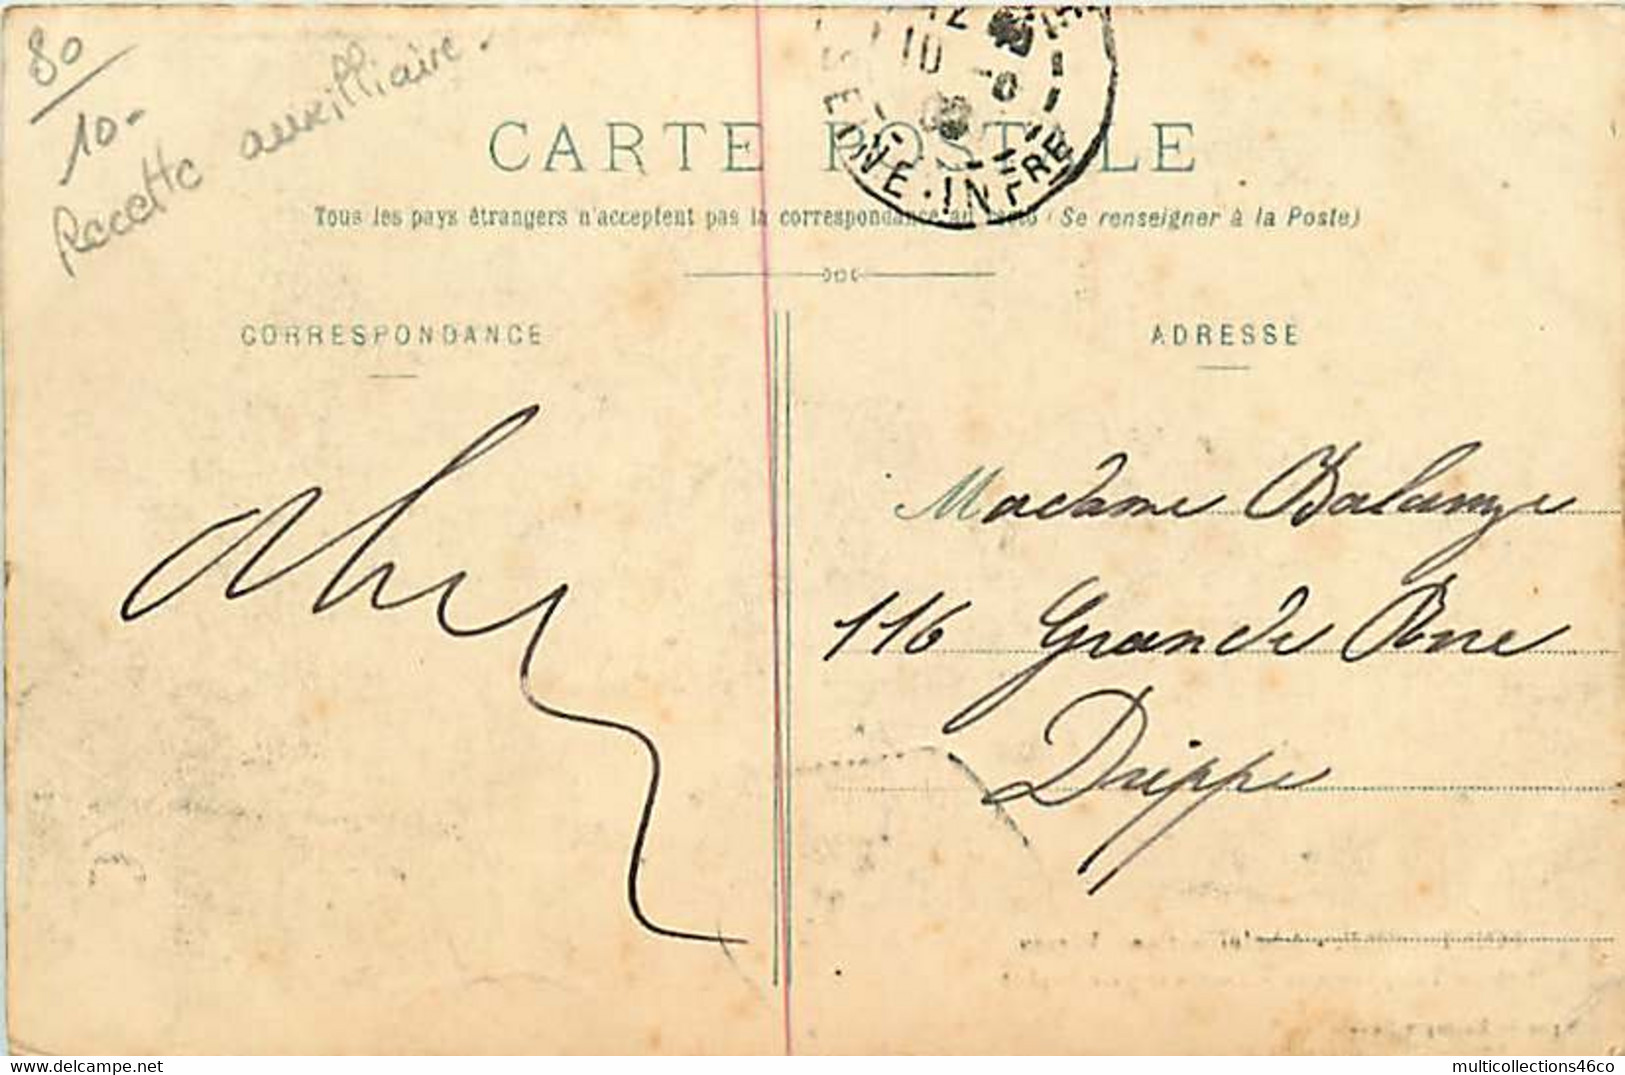 80
10-
Recette auxilliaire.
CARTE POSTALE
Tous les pays étrangers n'acceptent pas la correspondance au recto (Se renseigner à la Poste)
SEINE-INFRE
12
10
CORRESPONDANCE
ADRESSE
Madame
116 Grande Rue
Dieppe
multicollections46co